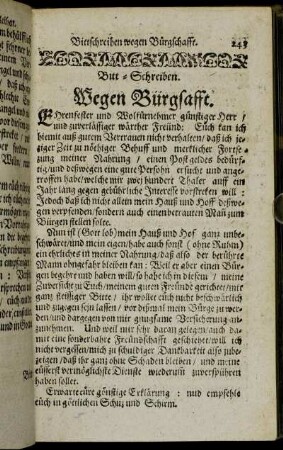 Bittschreiben wegen Bürgschafft. 243
Bitt-Schreiben.
Wegen Bürgsafft.
EHrenfester und Wolfürnehmer günstiger Herr /
und zuverlässiger wärther Freünd: Euch kan ich
hiemit auß gutem Vertrauen nicht verhalten / daß ich je-
tziger Zeit zu nöthiger Behuff und mercklicher Fortse-
tzung meiner Nahrung / einen Post geldes bedürf-
tig / und deßwegen eine gute Persohn ersucht und ange-
troffen habe / welche mir zweyhundert Thaler auff ein
Jahr lang gegen gebührliche Interesse vorstreken will:
Jedoch daß ich nicht allein mein Hauß und Hoff deßwe-
gen verpfenden / sondern auch einen betrauten Man zum
Bürgen stellen solte.
Nun ist (Gott lob) mein Hauß und Hof ganz unbe-
schwäret / und mein eigen / habe auch sonst (ohne Ruhm)
ein ehrliches in meiner Nahrung / daß also der berührte
Mann ohngefahr bleiben kan: Weil er aber einen Bür-
gen begehrt und haben will / so habe ich in diesem / meine
Zuversicht zu Euch / meinem guten Freünd gerichtet / mit
ganz fleissiger Bitte / ihr wollet eüch nicht beschwärlich
und zugegen seyn lassen / vor dismal mein Bürge zu wer-
den / und dargegen von mir gnugsame Versicherung an-
zunehmen. Und weil mir sehr daran gelegen / auch da-
mit eine sonderbahre Freündschafft geschiehet / will ich
nicht vergessen / mich zu schuldiger Danckbarkeit also zube-
zeigen / daß ihr ganz ohne Schaden bleiben / und meine
eüsserst vermöglichste Dienste wiederum zuverspühren
haben sollet.
Erwarte eüre günstige Erklärung: und empfehle
euch in göttlichen Schuz und Schirm.